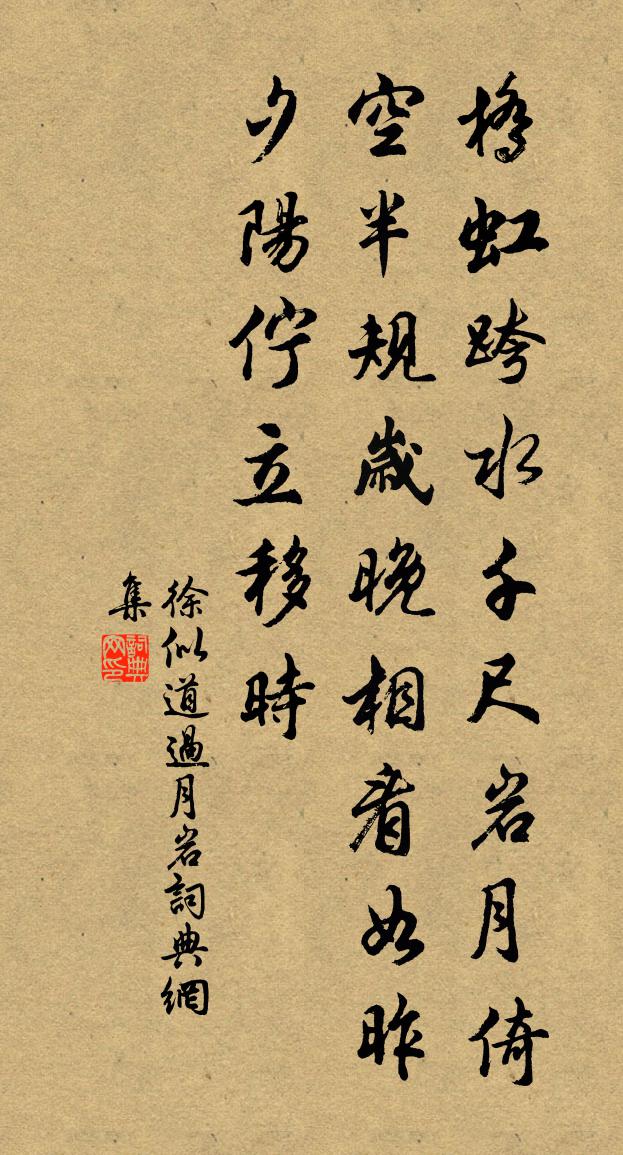 橋虹跨水千尺岩月倚
空半規歲晚相看如昨
夕陽佇立移時
徐似道過月岩詞典網
集
詞典
网印